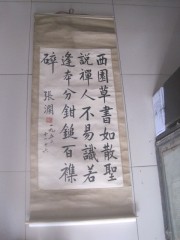 西園草書如散聖
說禪人不易識若
逢本分鉗鎚百襍
碎
張瀾